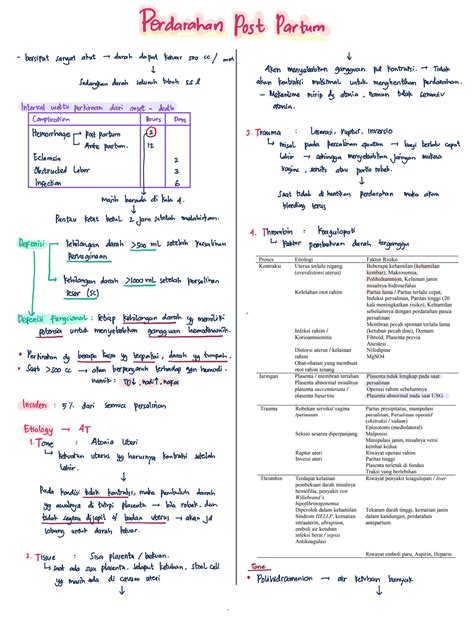 Perdarahan Post Partum
- bersifat sangat akut → darah dapat keluar 500 cc /
Sedangkan darah seluruh tubuh 5.5 l
Interval waktu perkiraan dari onset - death
Complication Hours Days
Hemorrhage Post partum 2
Ante partum 12
Eclamsia 2
Obstructed Labor 3
Infection 6
Masih berada di kala 4.
Pantau ketat betul 2 jam setelah melahirkan.
Definisi kehilangan darah >500 mL setelah persalinan
Pervaginaan
kehilangan darah >1000 mL setelah persalinan
sesar (SC)
Definisi Fungsional : setiap kehilangan darah yg memiliki
potensi untuk menyebabkan gangguan hemodinamik.
• Perkiraan dg berapa kain yg terpakai, darah yg tumpah.
• Saat >500 cc → akan berpengaruh terhadap ggn hemodi-
namik : TD↓, nadi↑, napas
Insiden : 5% dari semua persalinan
Etiology → 4T
1. Tone : Atonia Uteri
kekuatan uterus yg harusnya kontraksi setelah
lahir.
Pada kondisi tidak kontraksi, maka pembuluh darah
yg asalnya di plasenta → bisa robek, dan
tidak segera dijepit / badan uterus → akan jd
lobang untuk darah keluar.
2. Tissue : Sisa plasenta / bekuan.
saat ada sisa plasenta, selaput ketuban,
yg masih di cavum uteri
Akan menyebabkan gangguan kontraksi. → Tidak
akan kontraksi maksimal untuk menghentikan perdarahan.
- Mekanisme mirip dg atonia, namun tidak semasiv
atonia.
3. Trauma : Laserasi, ruptur, inversio
misal pada persalinan spontan → bayi terlalu cepat
lahir → sehingga menyebabkan jaringan
vagina, serviks atau portio robek.
Saat tidak dihentikan perdarahan maka akan
bleeding terus
4. Thrombin : Koagulopati
Faktor pembekuan darah terganggu
Proses Etiologi Faktor Risiko
Kontraksi Uterus terlalu regang Beberapa kehamilan (kehamilan
(overdistensi uterus) kembar), Makrosomia,
Polihidramnion, Kelainan janin
misalnya hidrosefalus
Kelelahan otot rahim Partus lama / Partus terlalu cepat,
Induksi persalinan, Paritas tinggi (20
kali meningkatkan risiko),
Sebelumnya dengan perdarahan pasca
persalinan
Infeksi rahim / Membran pecah spontan terlalu lama
Korioamnionitis (ketuban pecah dini), Demam
Fibroid, Plasenta previa
Distorsi uterus / kelainan Anestesi
rahim Nifedipine
Obat-obatan yang membuat MgSO4
otot rahim tenang
Jaringan Plasenta / membran tertahan Plasenta tidak lengkap pada saat
Plasenta abnormal misalnya persalinan
plasenta succenturiata / Operasi rahim sebelumnya
plasenta bipartita Plasenta abnormal pada saat USG
Trauma Robekan serviks/ vagina Partus presipitatus, manipulasi
/perineum persalinan, Persalinan operatif
(ekstraksi / vakum)
Episiotomi (mediolateral)
Seksio sesarea diperpanjang Malposisi
Manipulasi janin, misalnya versi
kembar kedua
Ruptur uteri Riwayat operasi rahim
Inversi uteri Paritas tinggi
Plasenta terletak di fundus
Traksi yang berlebihan
Thrombin Terdapat kelainan Riwayat penyakit koagulopati / liver
pembekuan darah misalnya
hemofilia, penyakit von
Willebrand's
hipofibrinogenemia
Diperoleh dalam kehamilan Tekanan darah tinggi, kematian janin
Sindrom HELLP, kematian dalam kandungan, perdarahan
intrauterin, abruption, antepartum.
emboli air ketuban
infeksi berat / sepsis
Antikoagulasi
Riwayat emboli paru, Aspirin, Heparin
Tone
• Polihidroamnion → air ketuban banyak